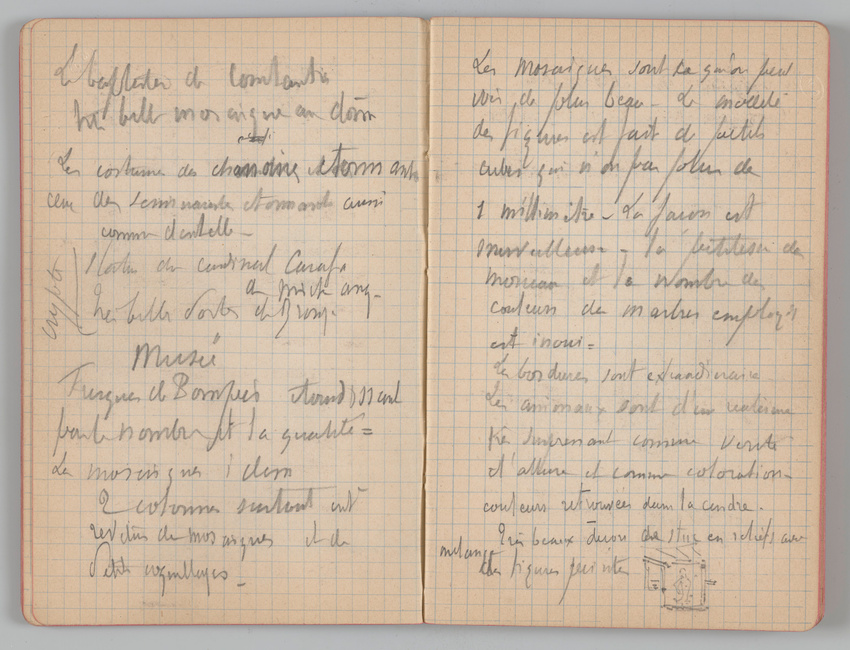 Le baptistère de Constantin
très belle mosaïque au dôm
Les costumes des chanoines étonnants
ceux des séminaristes étonnants aussi
comme dentelle_
crypte
Statue du cardinal Carafa
de Miche ang_
très belle Portes de Bronz_
Musée
Fresques de Pompei étourdissant
par le nombre et la qualité =
Les mosaiques idem
2 colonnes surtout ont
revetues de mosaiques et de
Petits coquillages_
Les Mosaiques sont ce qu'on peut
voir de plus beau_ Le modelé
des figures est fait de petits
cubes qui n'ont pas plus de
1 millimitre_ La façon est
merveilleuse_ la petitesse des
morceaux et le nombre des
couleurs des marbres employés
est inoui =
Les bordures sont extraordinaires
Les animaux sont d'un realisme
très surprenant comme verité
d'allure et comme coloration_
couleurs retrouvées dans la cendre.
Très beaux décors de stuc en reliefs avec
melange
des figures peintes